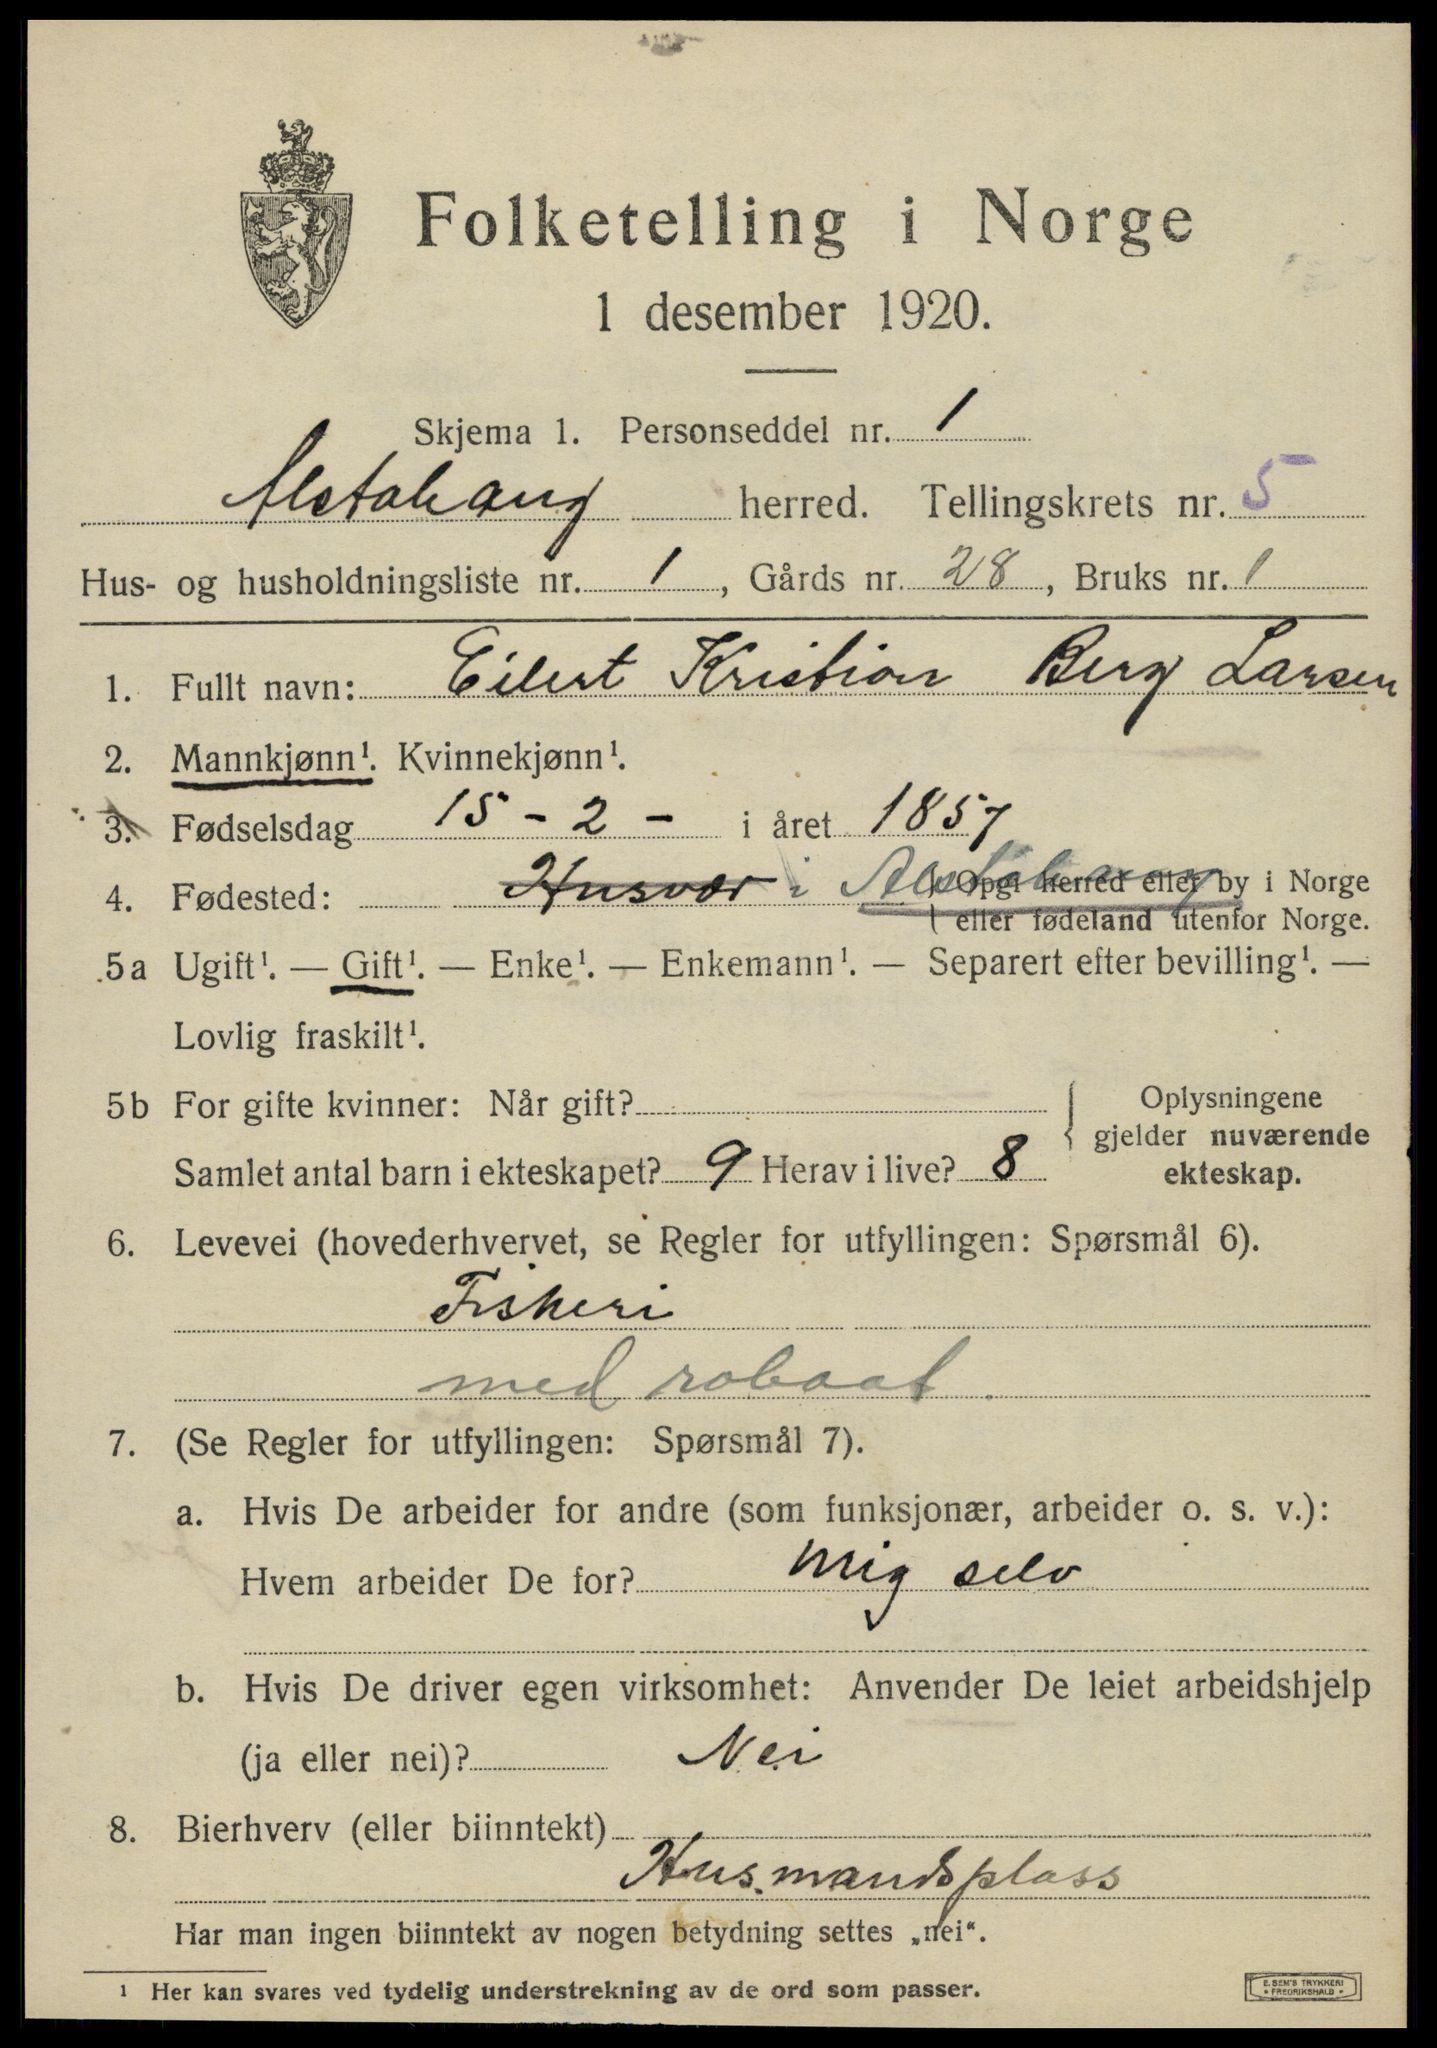 Folketelling i Norge
1 desember 1920.
Skjema 1. Personseddel nr. 1
Alstahaug herred. Tellingskrets nr. 5
Hus- og husholdningsliste nr. 1, Gårds nr. 28, Bruks nr. 1
1. Fullt navn: Eilert Kristian Berg Larsen
2. Mannkjønn¹. Kvinnekjønn¹.
3. Fødselsdag 15 - 2 - i året 1857
4. Fødested: Husvær i Alstahaug { Opgi herred eller by i Norge
eller fødeland utenfor Norge.
5a Ugift¹. — Gift¹. — Enke¹. — Enkemann¹. — Separert efter bevilling¹. —
Lovlig fraskilt¹.
5b For gifte kvinner: Når gift? { Oplysningene
gjelder nuværende
Samlet antal barn i ekteskapet? 9 Herav i live? 8 ekteskap.
6. Levevei (hovederhvervet, se Regler for utfyllingen: Spørsmål 6).
Fiskeri
med robaat.
7. (Se Regler for utfyllingen: Spørsmål 7).
a. Hvis De arbeider for andre (som funksjonær, arbeider o. s. v.):
Hvem arbeider De for? Mig selv
b. Hvis De driver egen virksomhet: Anvender De leiet arbeidshjelp
(ja eller nei)? Nei
8. Bierhverv (eller biinntekt)
Husmandsplass
Har man ingen biinntekt av nogen betydning settes „nei“.
¹ Her kan svares ved tydelig understrekning av de ord som passer.
E. SEM'S TRYKKERI
FREDRIKSHALD